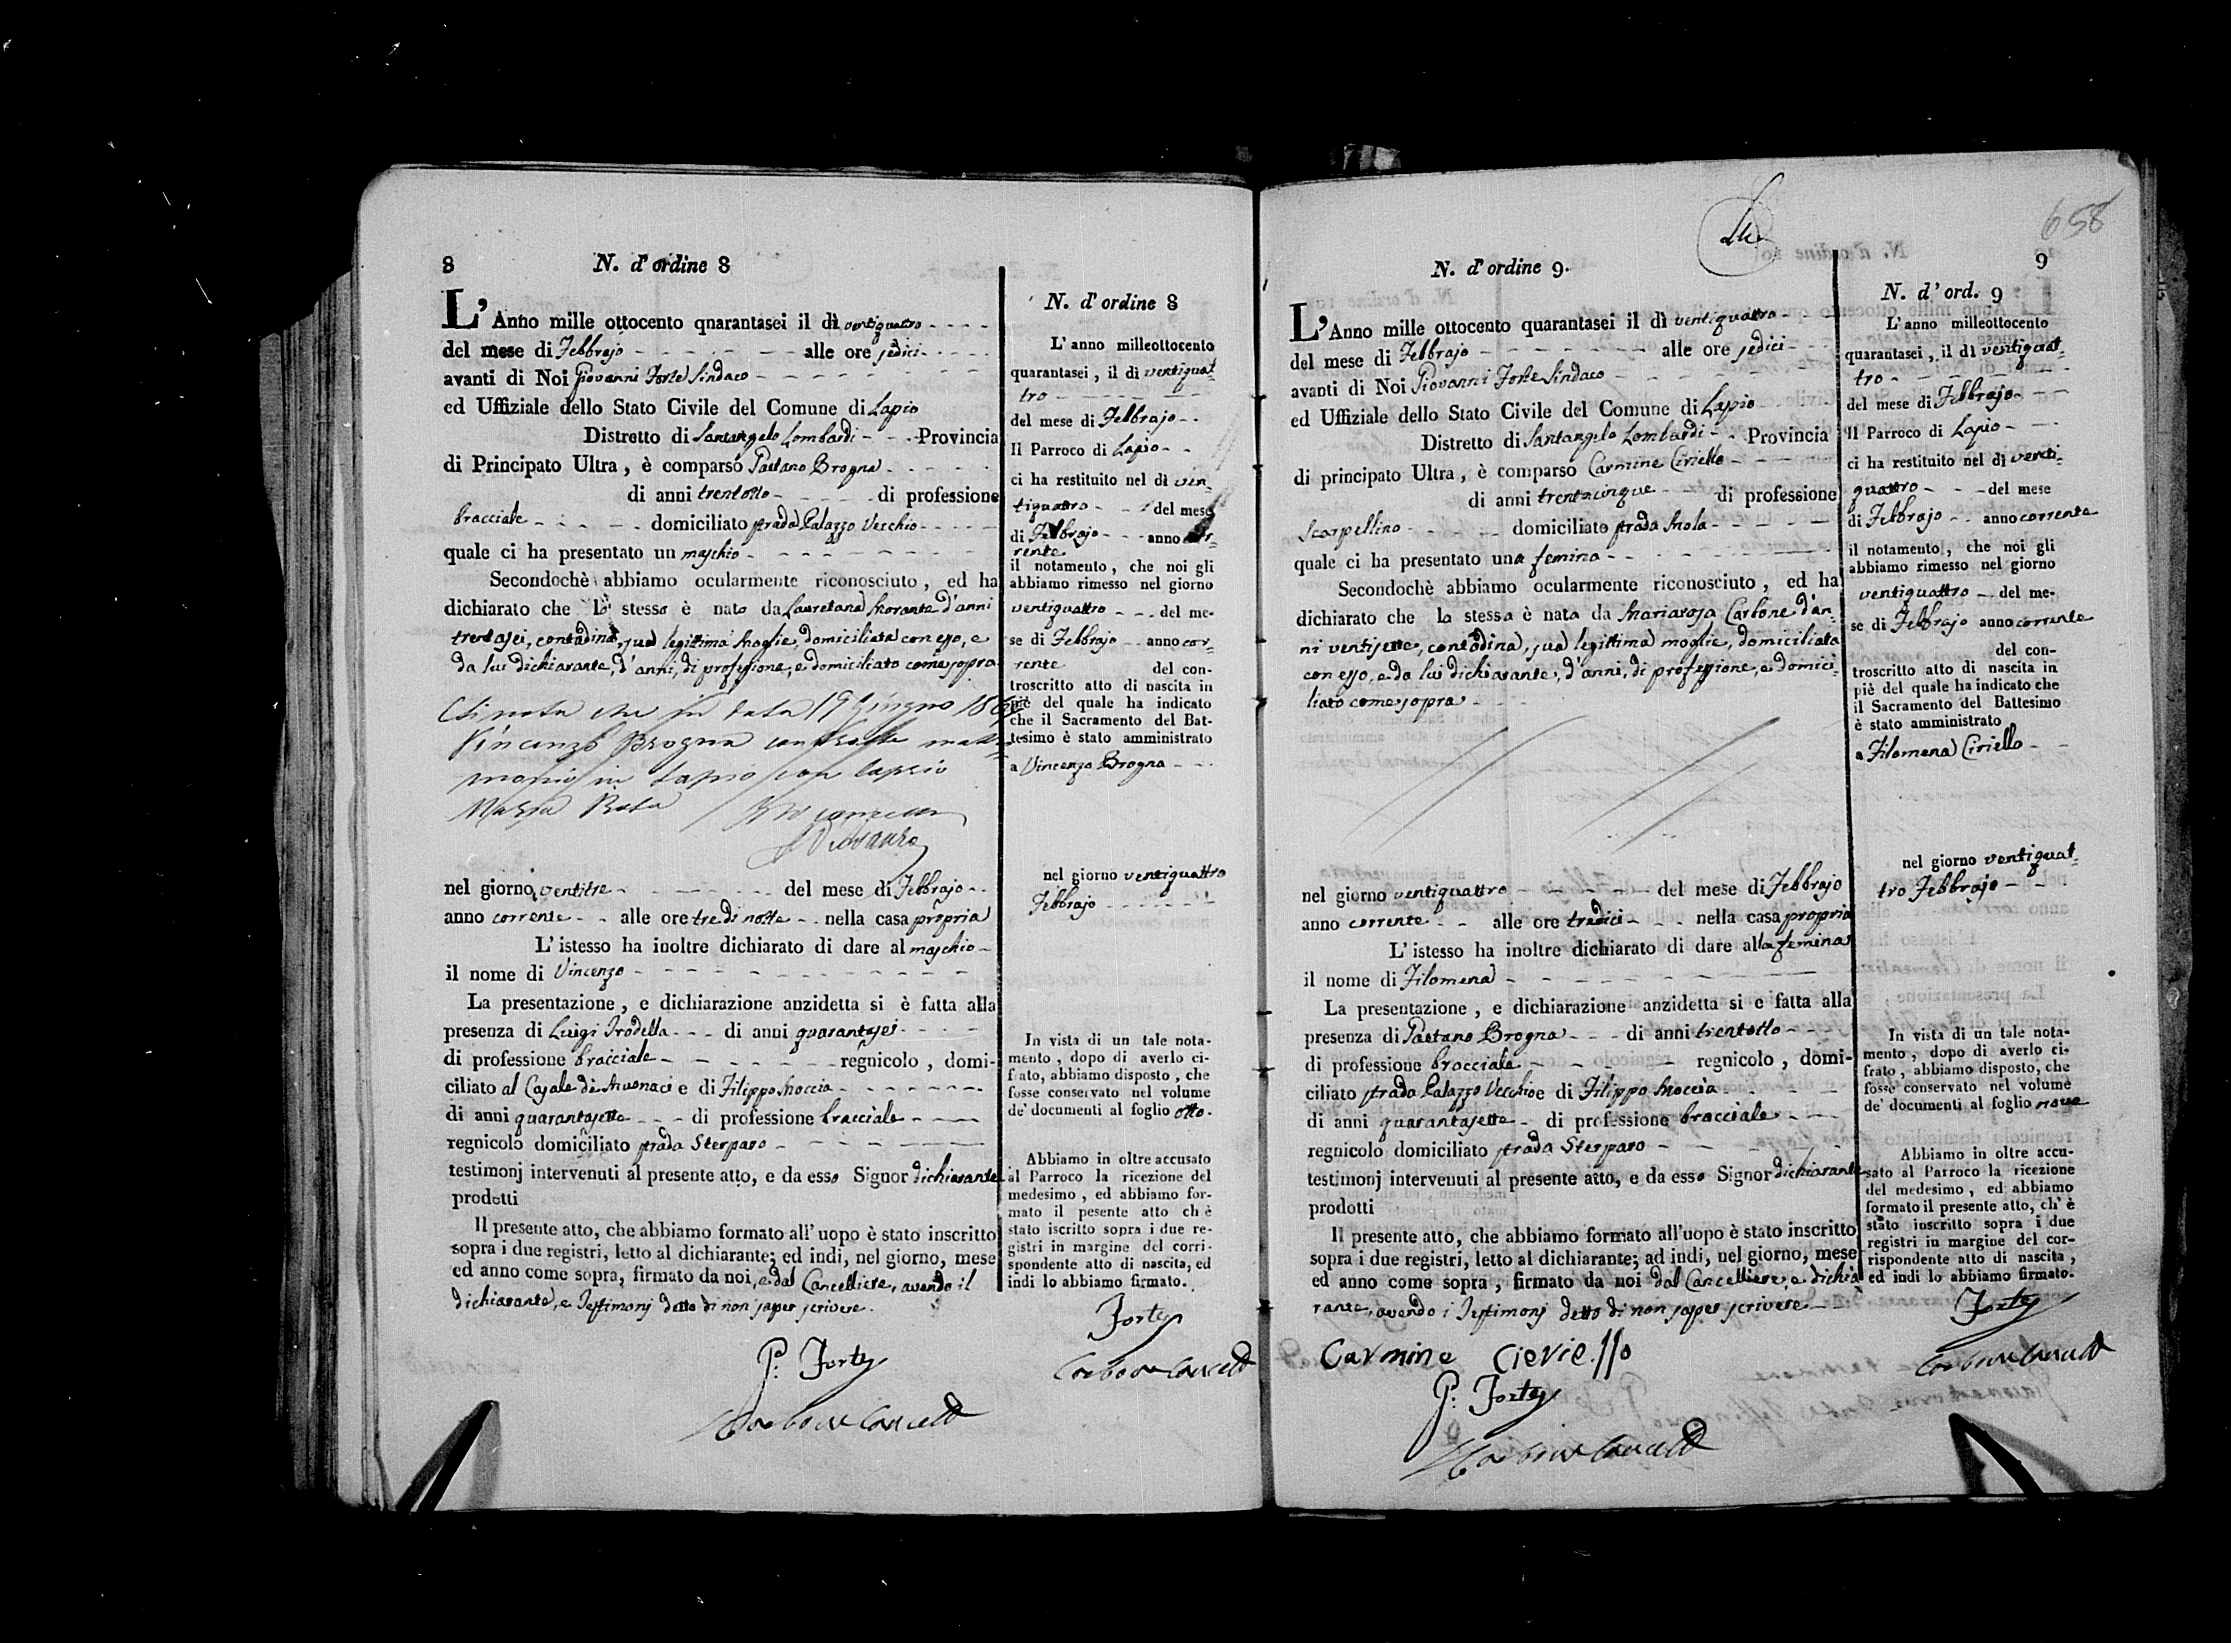 8
N. d' ordine 8
L'Anno mille ottocento quarantasei il dì ventiquattro
del mese di Febbrajo alle ore sedici
avanti di Noi Giovanni Forte Sindaco
ed Uffiziale dello Stato Civile del Comune di Lapio
Distretto di Santangelo Lombardi Provincia
di Principato Ultra, è comparso Gaetano Brogna
di anni trentotto di professione
bracciale domiciliato strada Palazzo Vecchio
quale ci ha presentato un maschio
Secondochè abbiamo ocularmente riconosciuto, ed ha
dichiarato che lo stesso è nato da Lauretana Morante d'anni
trentasei, contadina, sua legittima Moglie, domiciliata con esso, e
da lui dichiarante, d'anni, di professione, e domiciliato come sopra
Si nota che in data 19 Giugno
Vincenzo Brogna contrasse matri-
monio in Lapio con
Maria
nel giorno ventitre del mese di Febbrajo
anno corrente alle ore tre di notte nella casa propria
L'istesso ha inoltre dichiarato di dare al maschio
il nome di Vincenzo
La presentazione, e dichiarazione anzidetta si è fatta alla
presenza di Luigi Trodella di anni quarantasei
di professione bracciale regnicolo, domi-
ciliato al Casale di e di Filippo Moccia
di anni quarantasette di professione bracciale
regnicolo domiciliato strada Sterparo
testimonj intervenuti al presente atto, e da esso Signor dichiarante
prodotti
Il presente atto, che abbiamo formato all'uopo è stato inscritto
sopra i due registri, letto al dichiarante; ed indi, nel giorno, mese
ed anno come sopra, firmato da noi, e dal Cancelliere, avendo il
dichiarante, e Testimonj detto di non saper scrivere.
G: Forte
Carbone Cancell
N. d' ordine 8
L' anno milleottocento
quarantasei, il dì ventiquat-
tro
del mese di Febbrajo
Il Parroco di Lapio
ci ha restituito nel dì ven-
tiquattro del mese
di Febbrajo anno cor-
rente
il notamento, che noi gli
abbiamo rimesso nel giorno
ventiquattro del me-
se di Febbrajo anno cor-
rente del con-
troscritto atto di nascita in
piè del quale ha indicato
che il Sacramento del Bat-
tesimo è stato amministrato
a Vincenzo Brogna
nel giorno ventiquattro
Febbrajo
In vista di un tale nota-
mento, dopo di averlo ci-
frato, abbiamo disposto, che
fosse conservato nel volume
de' documenti al foglio otto.
Abbiamo in oltre accusato
al Parroco la ricezione del
medesimo, ed abbiamo for-
mato il pesente atto ch è
stato iscritto sopra i due re-
gistri in margine del corri-
spondente atto di nascita, ed
indi lo abbiamo firmato.
Forte
Carbone Cancell
658
9
N. d' ordine 9.
L'Anno mille ottocento quarantasei il dì ventiquattro
del mese di Febbrajo alle ore sedici
avanti di Noi Giovanni Forte Sindaco
ed Uffiziale dello Stato Civile del Comune di Lapio
Distretto di Santangelo Lombardi Provincia
di principato Ultra, è comparso Carmine Ciriello
di anni trentacinque di professione
Scarpellino domiciliato strada Mola
quale ci ha presentato una femina
Secondochè abbiamo ocularmente riconosciuto, ed ha
dichiarato che la stessa è nata da Mariarosa Carbone d'an-
ni ventisette, contadina, sua legittima moglie, domiciliata
con esso, e da lui dichiarante, d'anni, di professione, e domici-
liato come sopra
nel giorno ventiquattro del mese di Febbrajo
anno corrente alle ore tredici nella casa propria
L'istesso ha inoltre dichiarato di dare alla femina
il nome di Filomena
La presentazione, e dichiarazione anzidetta si e fatta alla
presenza di Gaetano Brogna di anni trentotto
di professione bracciale regnicolo, domi-
ciliato strada Palazzo Vecchio e di Filippo Moccia
di anni quarantasette di professione bracciale
regnicolo domiciliato strada Sterparo
testimonj intervenuti al presente atto, e da esso Signor dichiarante
prodotti
Il presente atto, che abbiamo formato all'uopo è stato inscritto
sopra i due registri, letto al dichiarante; ad indi, nel giorno, mese
ed anno come sopra, firmato da noi dal Cancelliere, e dichia
rante, avendo i Testimonj detto di non saper scrivere
Carmine Cieriello
G: Forte
Carbone Cancell
N. d' ord. 9
L' anno milleottocento
quarantasei, il dì ventiquat-
tro
del mese di Febbrajo
Il Parroco di Lapio
ci ha restituito nel dì venti-
quattro del mese
di Febbrajo anno corrente
il notamento, che noi gli
abbiamo rimesso nel giorno
ventiquattro del me-
se di Febbrajo anno corrente
del con-
troscritto atto di nascita in
piè del quale ha indicato che
il Sacramento del Battesimo
è stato amministrato
a Filomena Ciriello
nel giorno ventiquat-
tro Febbrajo
In vista di un tale nota-
mento, dopo di averlo ci-
frato, abbiamo disposto, che
fosse conservato nel volume
de' documenti al foglio nove
Abbiamo in oltre accu-
sato al Parroco la ricezione
del medesimo, ed abbiamo
formato il presente atto, ch' è
stato inscritto sopra i due
registri in margine del cor-
rispondente atto di nascita,
ed indi lo abbiamo firmato.
Forte
Carbone Cancell